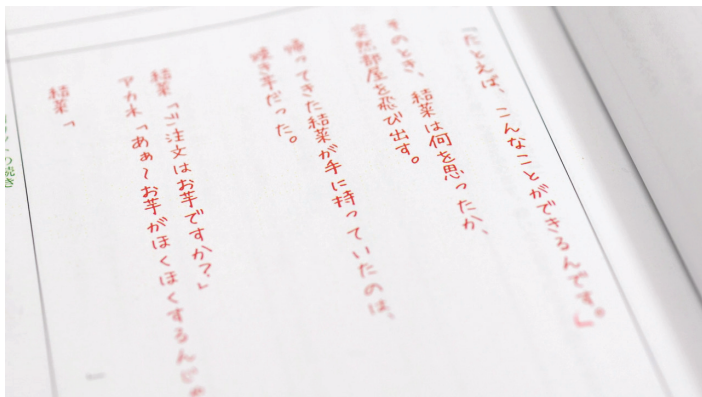 『たとえば、こんなことができるんです。』
そのとき、結菜は何を思ったか、
突然部屋を飛び出す。
帰ってきた結菜が手に持っていたのは、
焼き芋だった。
結菜「ご注文はお芋ですか？」
アカネ「あぁ～お芋がほくほくするんじゃ
結菜「
の続き